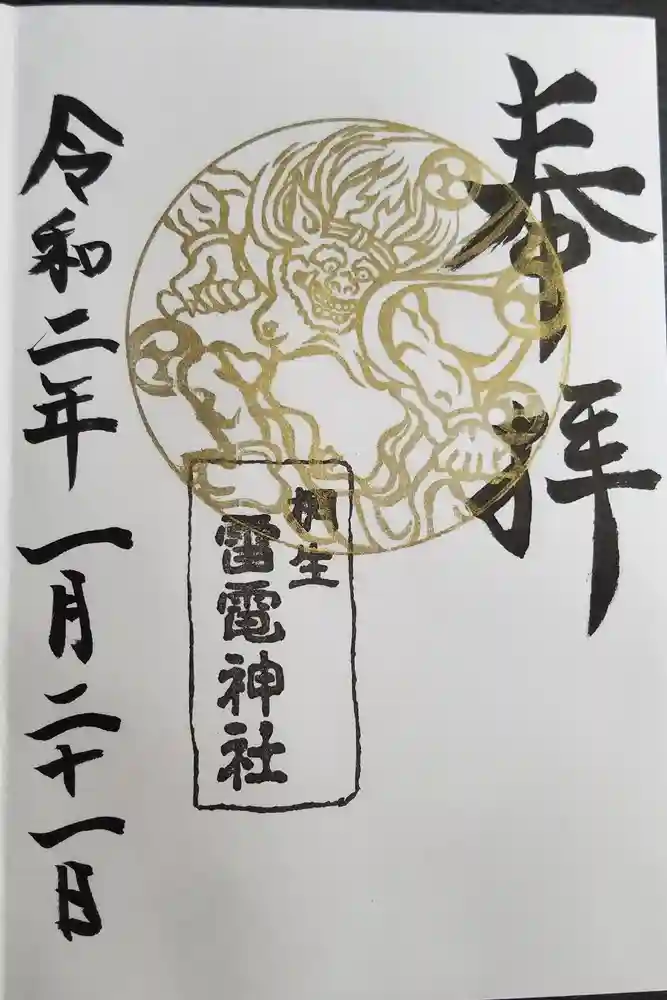 奉拝
桐生
雷電神社
令和二年一月二十一日